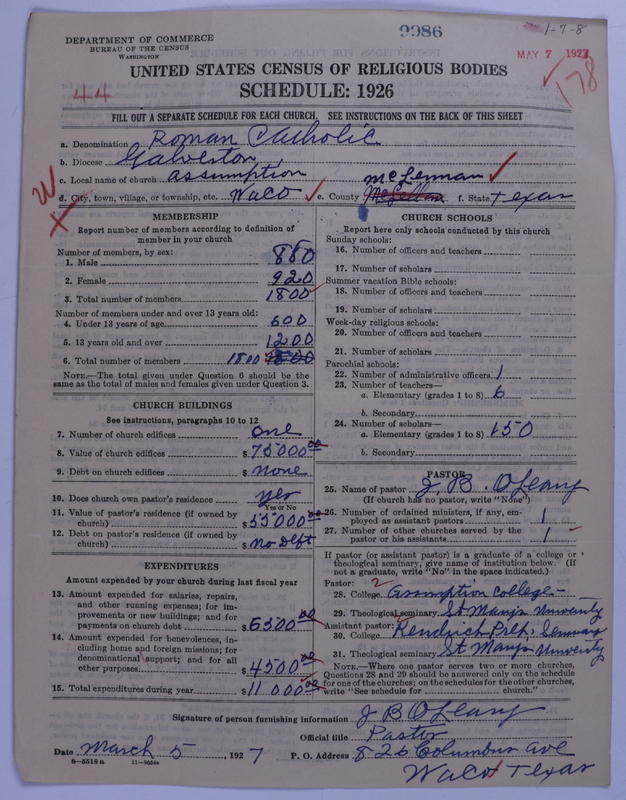 9986
1-7-8
DEPARTMENT OF COMMERCE
BUREAU OF THE CENSUS
WASHINGTON
MAY 7 1927
178
44
UNITED STATES CENSUS OF RELIGIOUS BODIES
SCHEDULE: 1926
FILL OUT A SEPARATE SCHEDULE FOR EACH CHURCH. SEE INSTRUCTIONS ON THE BACK OF THIS SHEET
a. Denomination Roman Catholic
b. Diocese Galveston
c. Local name of church assumption
McLennan
d. City, town, village, or township, etc. Waco e. County f. State Texas
MEMBERSHIP
Report number of members according to definition of
member in your church
Number of members, by sex:
1. Male 880
2. Female 920
3. Total number of members 1800
Number of members under and over 13 years old:
4. Under 13 years of age 600
5. 13 years old and over 1200
6. Total number of members 1800
NOTE.—The total given under Question 6 should be the
same as the total of males and females given under Question 3.
CHURCH BUILDINGS
See instructions, paragraphs 10 to 12
7. Number of church edifices one
8. Value of church edifices $ 75000.00
9. Debt on church edifices $ none
10. Does church own pastor's residence yes
Yes or No
11. Value of pastor's residence (if owned by
church) $ 55000.00
12. Debt on pastor's residence (if owned by
church) $ no Debt
EXPENDITURES
Amount expended by your church during last fiscal year
13. Amount expended for salaries, repairs,
and other running expenses; for im-
provements or new buildings; and for
payments on church debt $ 6500.00
14. Amount expended for benevolences, in-
cluding home and foreign missions; for
denominational support; and for all
other purposes $ 4500.00
15. Total expenditures during year $ 11000.00
CHURCH SCHOOLS
Report here only schools conducted by this church
Sunday schools:
16. Number of officers and teachers
17. Number of scholars
Summer vacation Bible schools:
18. Number of officers and teachers
19. Number of scholars
Week-day religious schools:
20. Number of officers and teachers
21. Number of scholars
Parochial schools:
22. Number of administrative officers 1
23. Number of teachers—
a. Elementary (grades 1 to 8) 6
b. Secondary
24. Number of scholars—
a. Elementary (grades 1 to 8) 150
b. Secondary
PASTOR
25. Name of pastor J. B. O'Leary
(If church has no pastor, write "None")
26. Number of ordained ministers, if any, em-
ployed as assistant pastors 1
27. Number of other churches served by the
pastor or his assistants 1
If pastor (or assistant pastor) is a graduate of a college or
theological seminary, give name of institution below. (If
not a graduate, write "No" in the space indicated.)
Pastor: 2
28. College Assumption College
29. Theological seminary St Marys University
Assistant pastor:
30. College Kendrick Prep. Seminary
31. Theological seminary St Marys University
NOTE.—Where one pastor serves two or more churches,
Questions 28 and 29 should be answered only on the schedule
for one of the churches; on the schedules for the other churches,
write "See schedule for church."
Signature of person furnishing information J B O'Leary
Official title Pastor
Date March 5, 1927 P. O. Address 826 Columbus ave
8-5518a 11-9054a
Waco Texas